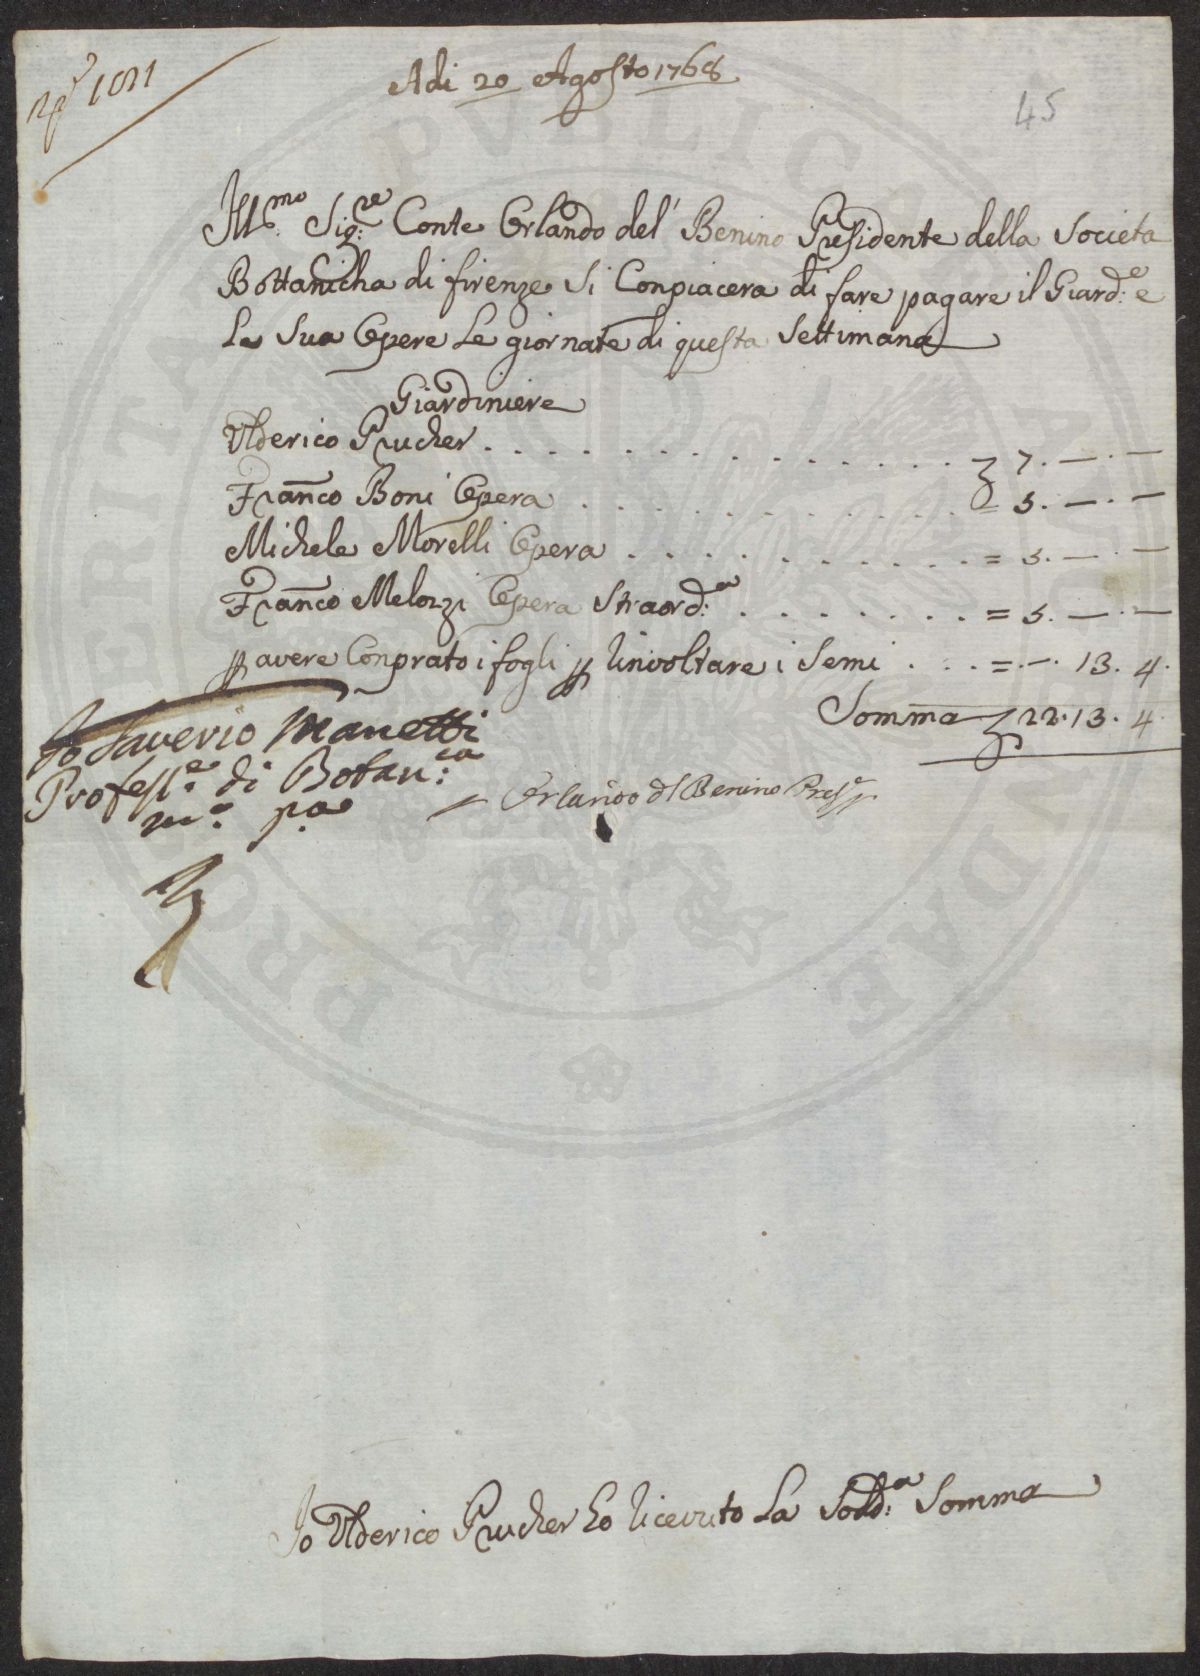 Adi 20 Agosto 1768
45
Ill.mo Sig.re Conte Orlando del Benino Presidente della Società
Bottanicha di firenze Si Conpiacera di fare pagare il Giard.e e
Le Sua Opere Le giornate di questa Settimana
Giardiniere
Ulderico Prucher . . . . . . . . . . . . . . 7. — . —
Franco Boni Opera . . . . . . . . . . . = 5. — . —
Michele Morelli Opera . . . . . . . . . . = 5. — . —
Franco Melozzi Opera Straord.a . . . . . . . = 5. — . —
p avere Conprato i fogli p rinvoltare i Semi . . . = — . 13. 4.
Somma 22. 13. 4
Io Saverio Manetti
Profess.e di Botan.ca
m.o pa
Orlando dl Benino Pres.e
Io Ulderico Prucher ho ricevuto La Sodd.a Somma
PRO PUBLICAE DAE